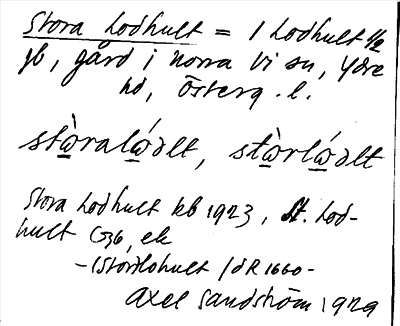 Stora Lodhult = 1 Lodhult 1/2
jb, gård i Norra Vi sn, Ydre
hd, Österg. l.
stò̱raló̱dlt, stò̱rló̱dlt
Stora Lodhult kb 1923, St. Lod-
hult G36, ek
Axel Sandström 1929